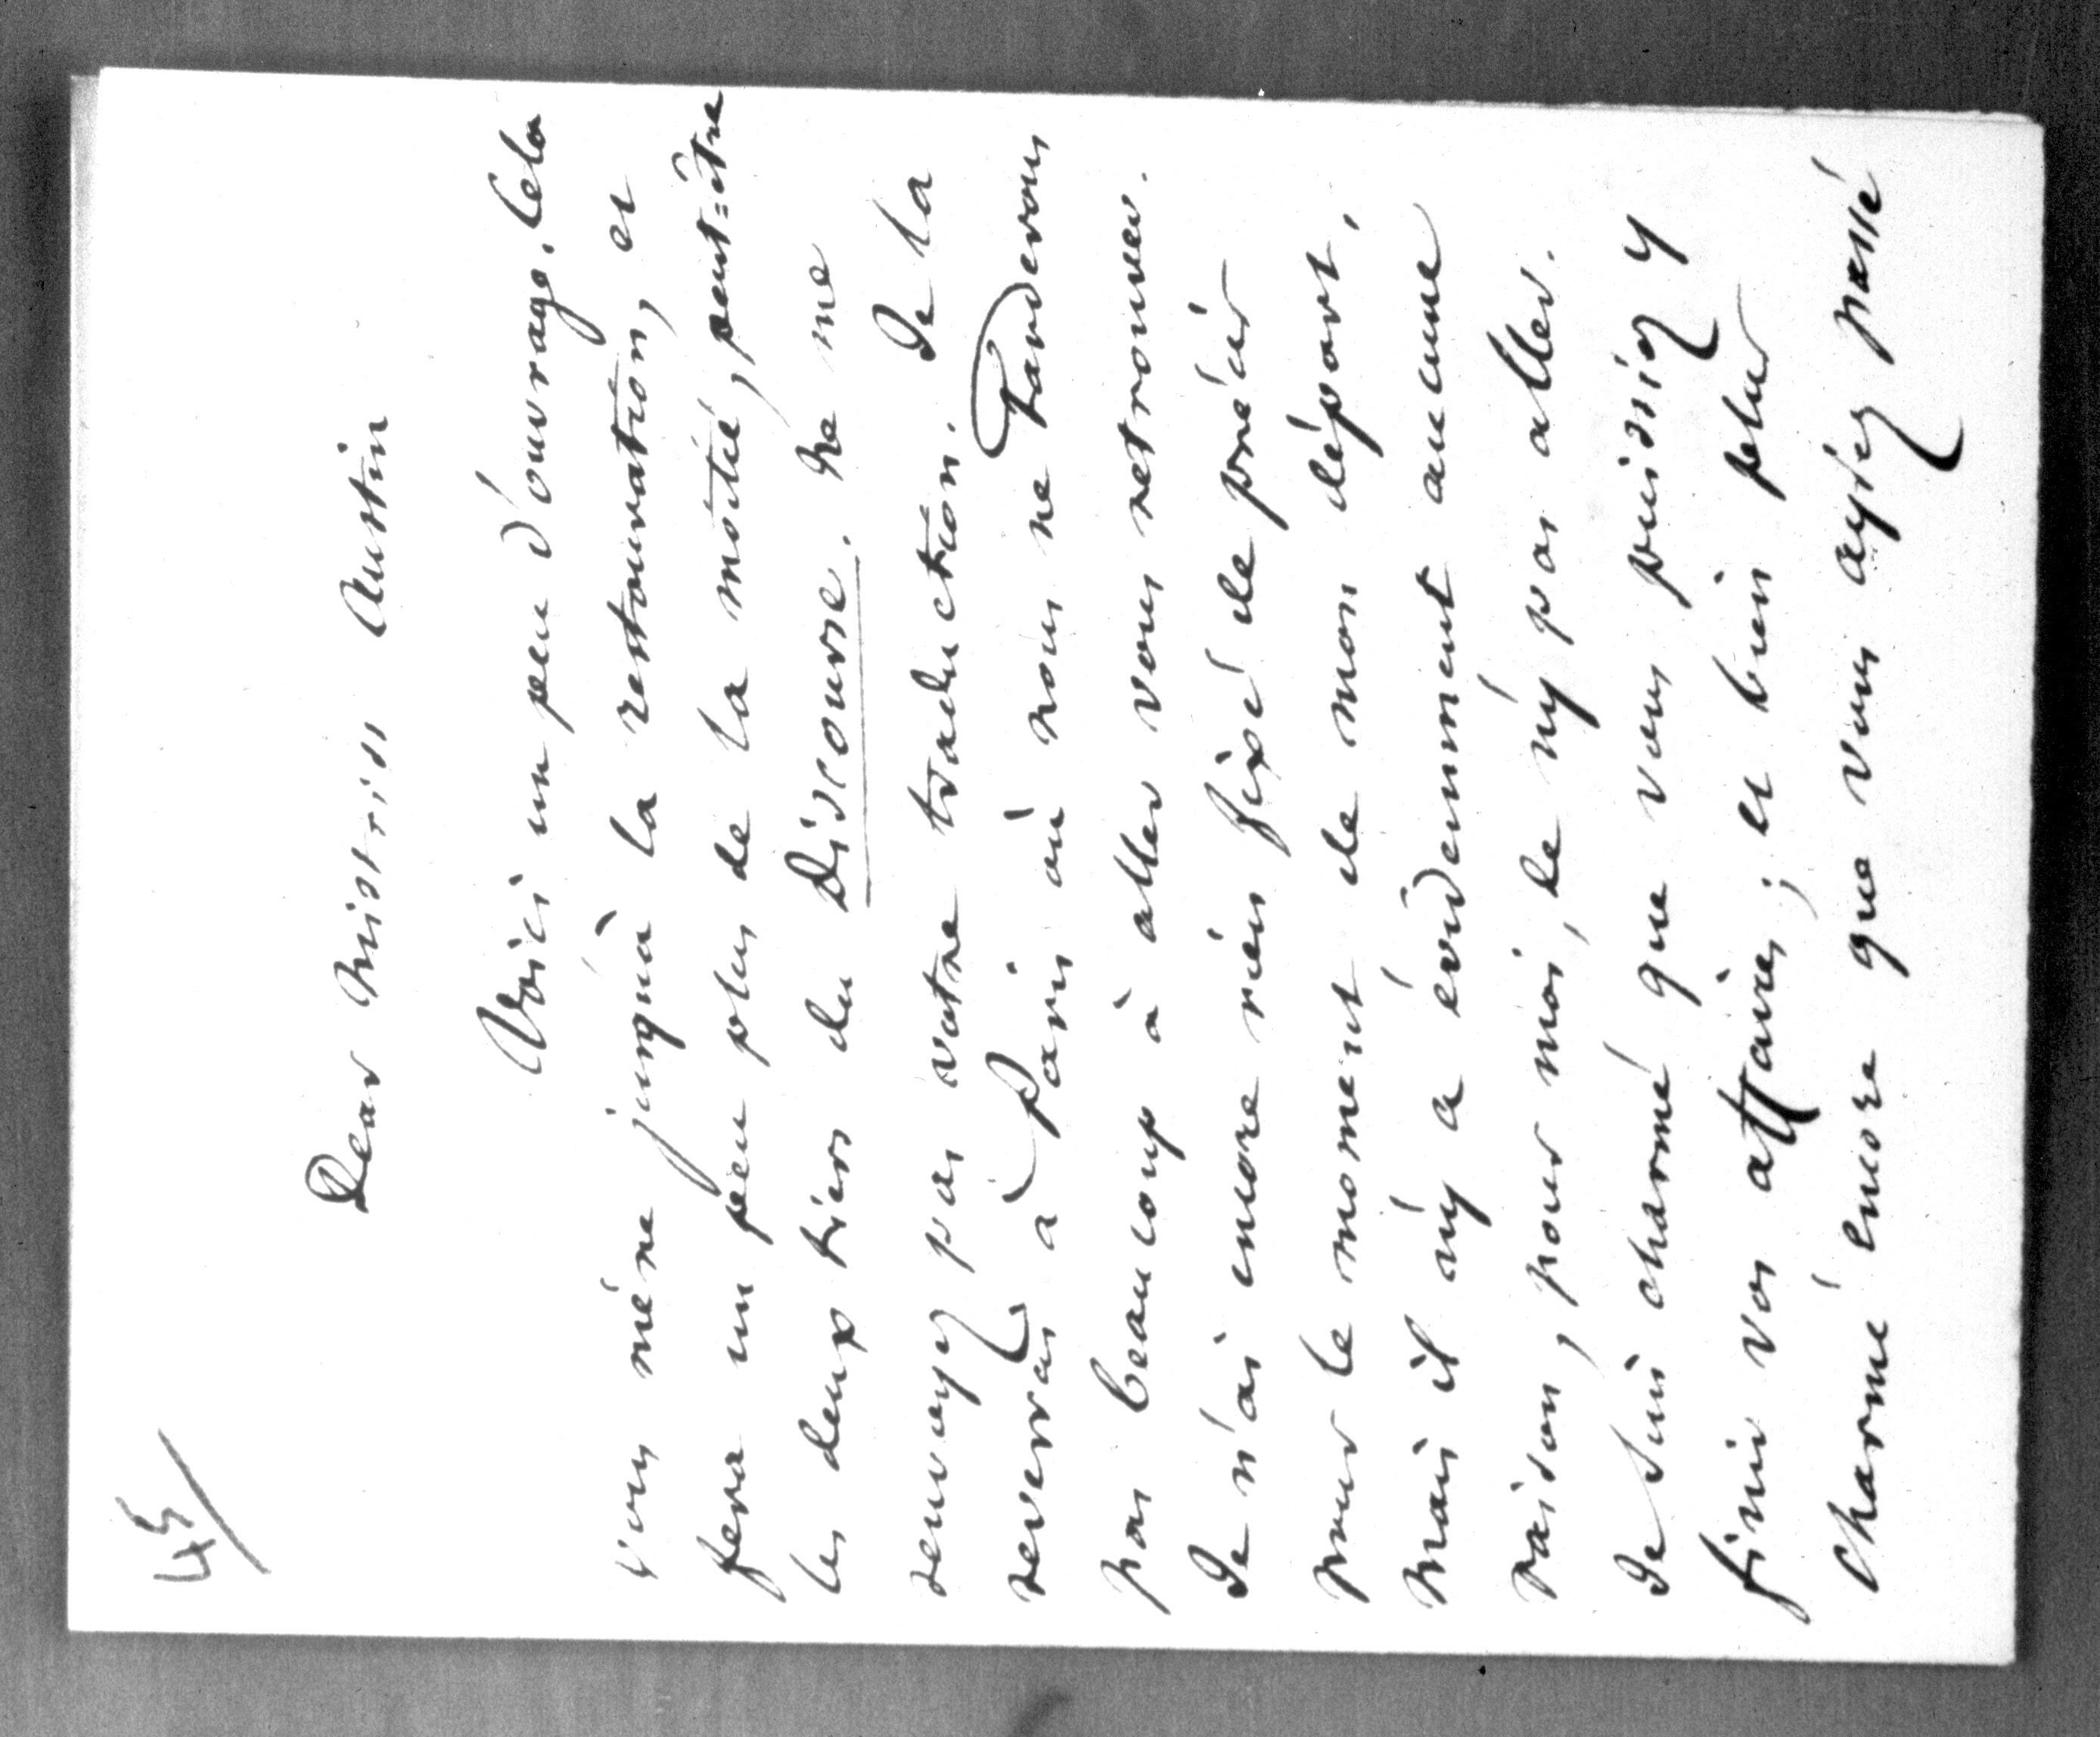 45/
Dear Mistriss Austin
Voici un peu d'ouvrage. Cela
vous mène jusqu'à la restauration, et
fera un peu plus de la moitié, peut-être
les deux tiers du Discourse. Ne me
renvoyez pas votre traduction. Je la
reverrai à Paris où nous ne tarderons
pas beaucoup à aller vous retrouver.
Je n'ai encore rien fixé de précis
pour le moment de mon départ,
mais il n'y a évidemment aucune
raison, pour moi, de n'y pas aller.
Je suis charmé que vous puissiez y
finir vos affaires ; et bien plus
charmé encore que vous ayiez passé